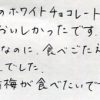 のホワイトチョコレート
おいしかったです。
なのに、食べごた
でした。
梅が食べたいで